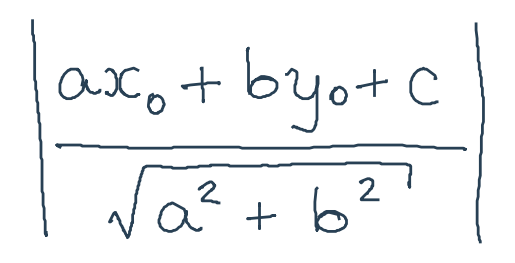 |ax₀ + by₀ + c|
√(a² + b²)